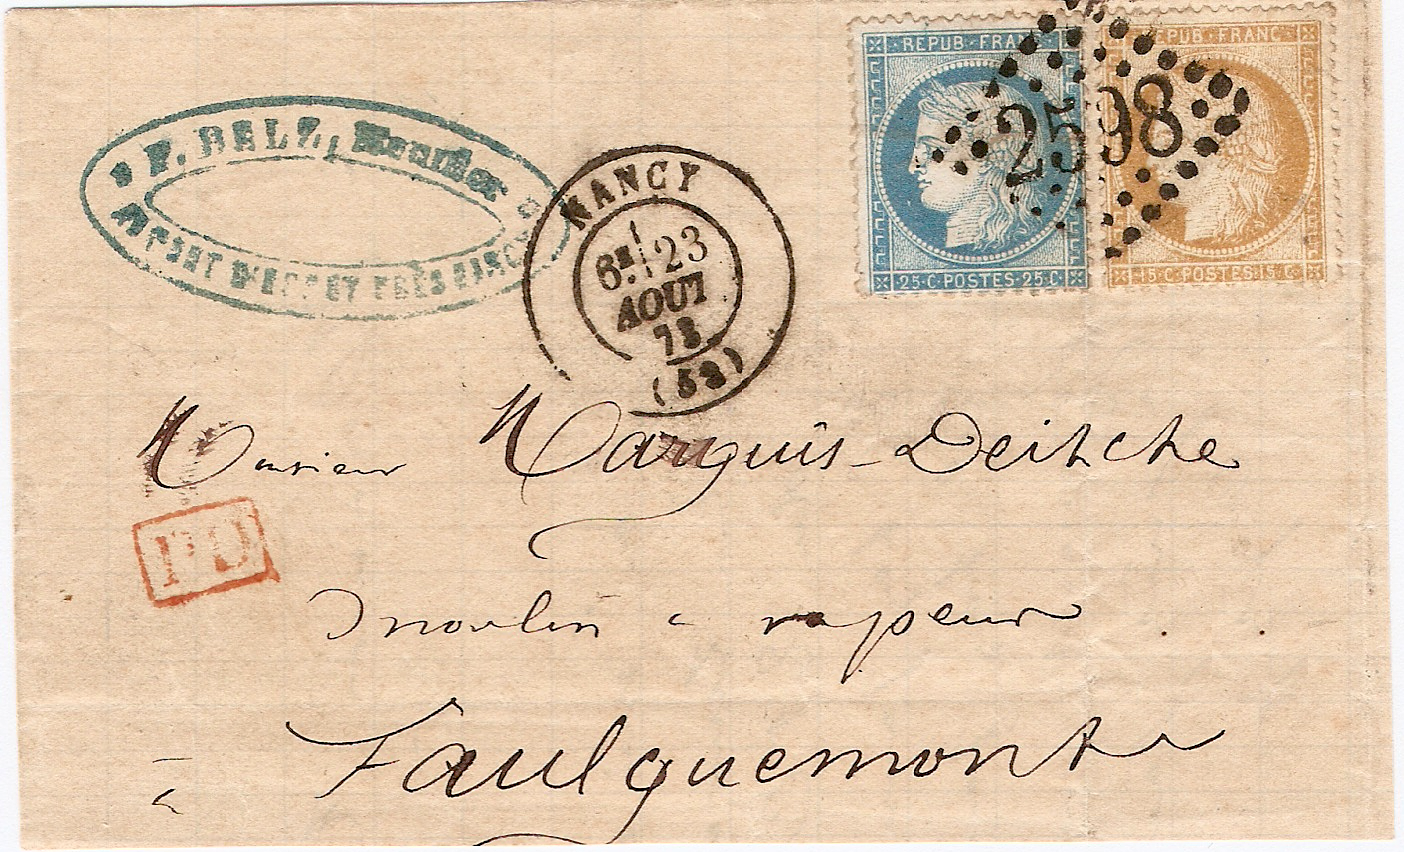 F. BELZ, Meunier
A PONT D'ESSEY PRÈS NANCY
NANCY
6E 23
AOUT
73
(52)
REPUB FRANC
25 C POSTES 25 C
2598
REPUB FRANC
15 C POSTES 15 C
Monsieur Marquis-Deitche
PD
moulin a vapeur
a Faulquemont